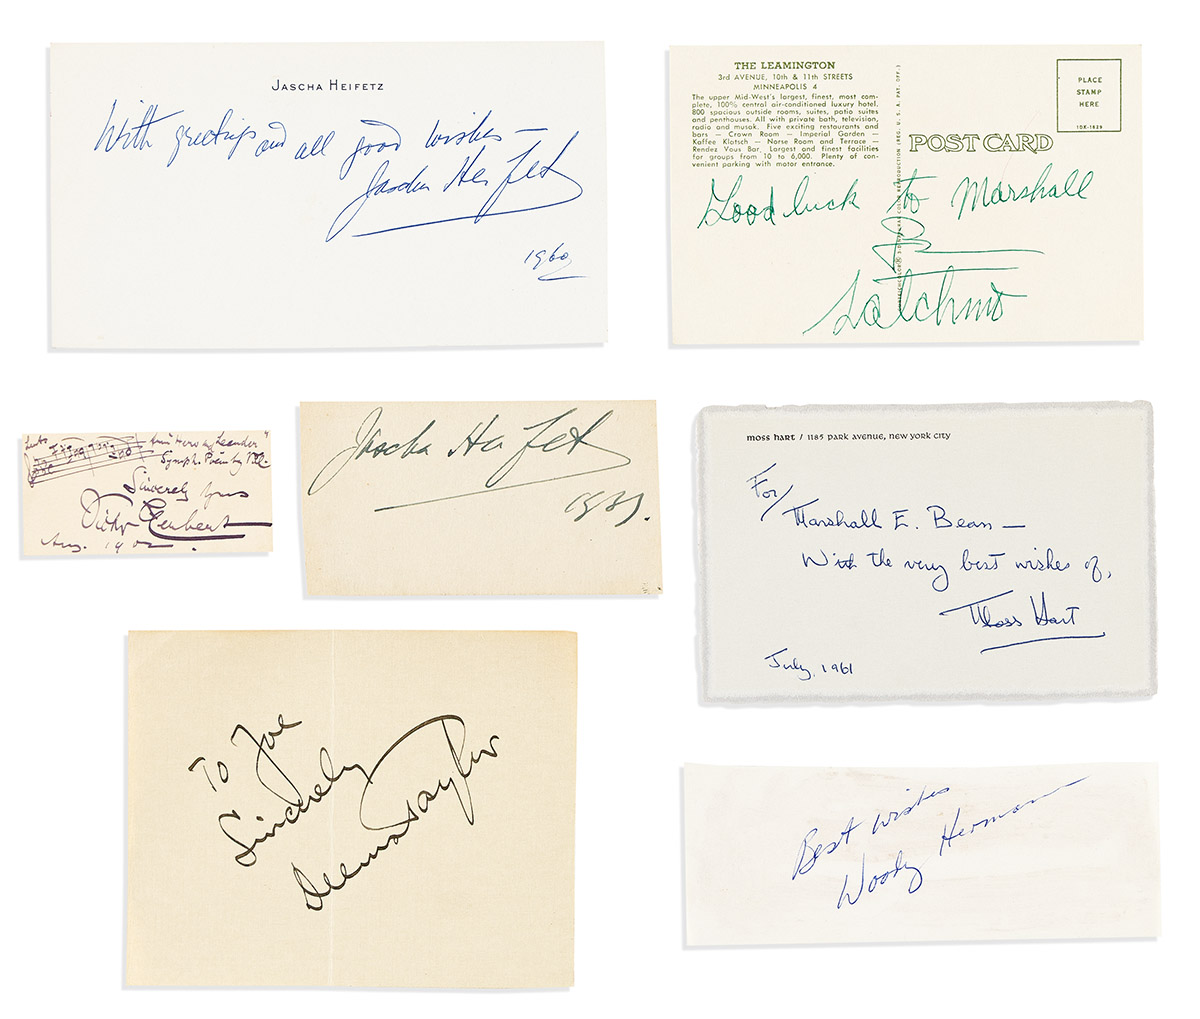 JASCHA HEIFETZ
With greetings and all good wishes —
Jascha Heifetz
1960
THE LEAMINGTON
3rd AVENUE, 10th & 11th STREETS
MINNEAPOLIS 4
The upper Mid-West's largest, finest, most com-
plete, 100% central air-conditioned luxury hotel.
800 spacious outside rooms, suites, patio suites
and penthouses. All with private bath, television,
radio and musak. Five exciting restaurants and
bars — Crown Room — Imperial Garden —
Kaffee Klatsch — Norse Room and Terrace —
Rendez Vous Bar. Largest and finest facilities
for groups from 10 to 6,000. Plenty of con-
venient parking with motor entrance.
POST CARD
PLACE
STAMP
HERE
Good luck to Marshall
Satchmo
from Hero & Leander"
Symph. Poem by V.H.
Sincerely yours
Victor Herbert
Aug. 1902.
Jascha Heifetz
MOSS HART / 1185 PARK AVENUE, NEW YORK CITY
For/
Marshall E. Bean —
With the very best wishes of,
Moss Hart
July, 1961
To Joe
Sincerely
Deems Taylor
Best wishes
Woody Herman